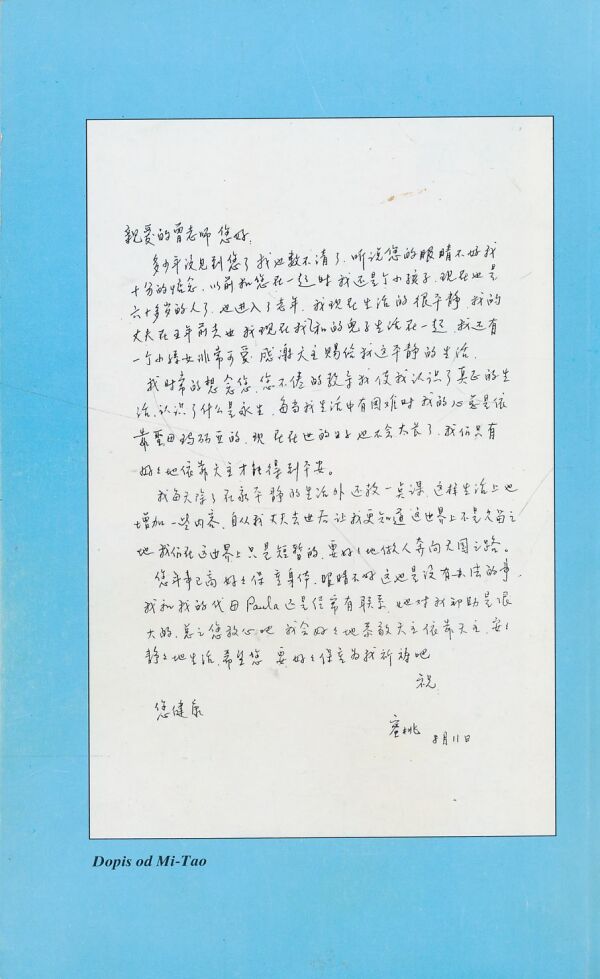 亲爱的曾老师 您好：
多少年没见到您了我也数不清了，听说您的眼睛不好我
十分的惦念，以前和您在一起时我还是个小孩子，现在也是
六十多岁的人了，也进入了老年，我现在生活的很平静，我的
丈夫在五年前去世我现在我和的儿子生活在一起，我还有
一个小孙女非常可爱，感谢天主赐给我这平静的生活，
我时常的想念您，您不仅的教导我使我认识了真正的生
活，认识了什么是永生，每当我生活中有困难时，我的心总是依
靠圣母玛利亚的，现在在世的日子也不会太长了，我们只有
好好地依靠天主才能得到平安。
我每天除了在平静的生活外还教一点课，这样生活上也
增加一些内容，自从我丈夫去世后让我更知道这世界上不是久留之
地我们在这世界上只是短暂的，要好好地做人奔向天国之路。
您年事已高好好保重身体，眼睛不好这也是没有办法的事，
我和我的代母Paula还是经常有联系，她对我帮助是很
大的，总之您放心吧 我会好好地恭敬天主依靠天主，安安
静静地生活，希望您 要好好保重为我祈祷吧
祝
您健康
蜜桃 8月11日
Dopis od Mi-Tao